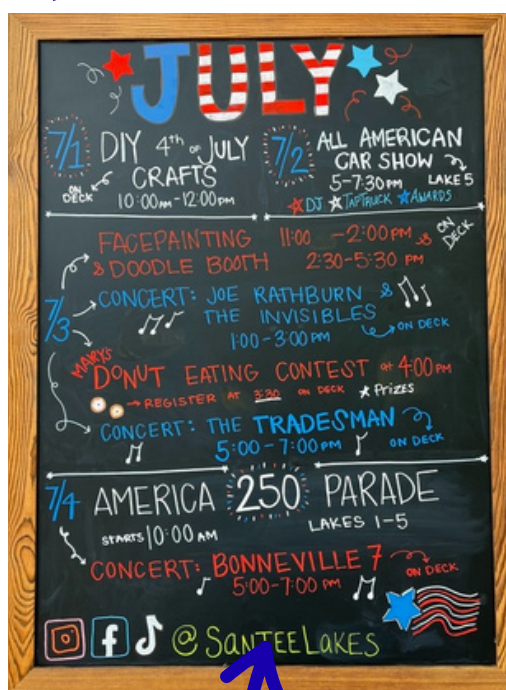 JULY
7/1 DIY 4th of JULY
CRAFTS
ON DECK
10:00AM-12:00PM
7/2 ALL AMERICAN
CAR SHOW
5-7:30PM LAKE 5
DJ TAPTRUCK AWARDS
7/3
FACEPAINTING 11:00 -2:00PM &
& DOODLE BOOTH 2:30-5:30 PM
ON DECK
CONCERT: JOE RATHBURN &
THE INVISIBLES
1:00-3:00PM ON DECK
MARYS
DONUT EATING CONTEST at 4:00PM
REGISTER AT 3:30 ON DECK PRIZES
CONCERT: THE TRADESMAN
5:00-7:00PM ON DECK
7/4 AMERICA 250 PARADE
STARTS 10:00 AM LAKES 1-5
CONCERT: BONNEVILLE 7
5:00-7:00 PM ON DECK
@SANTEELAKES